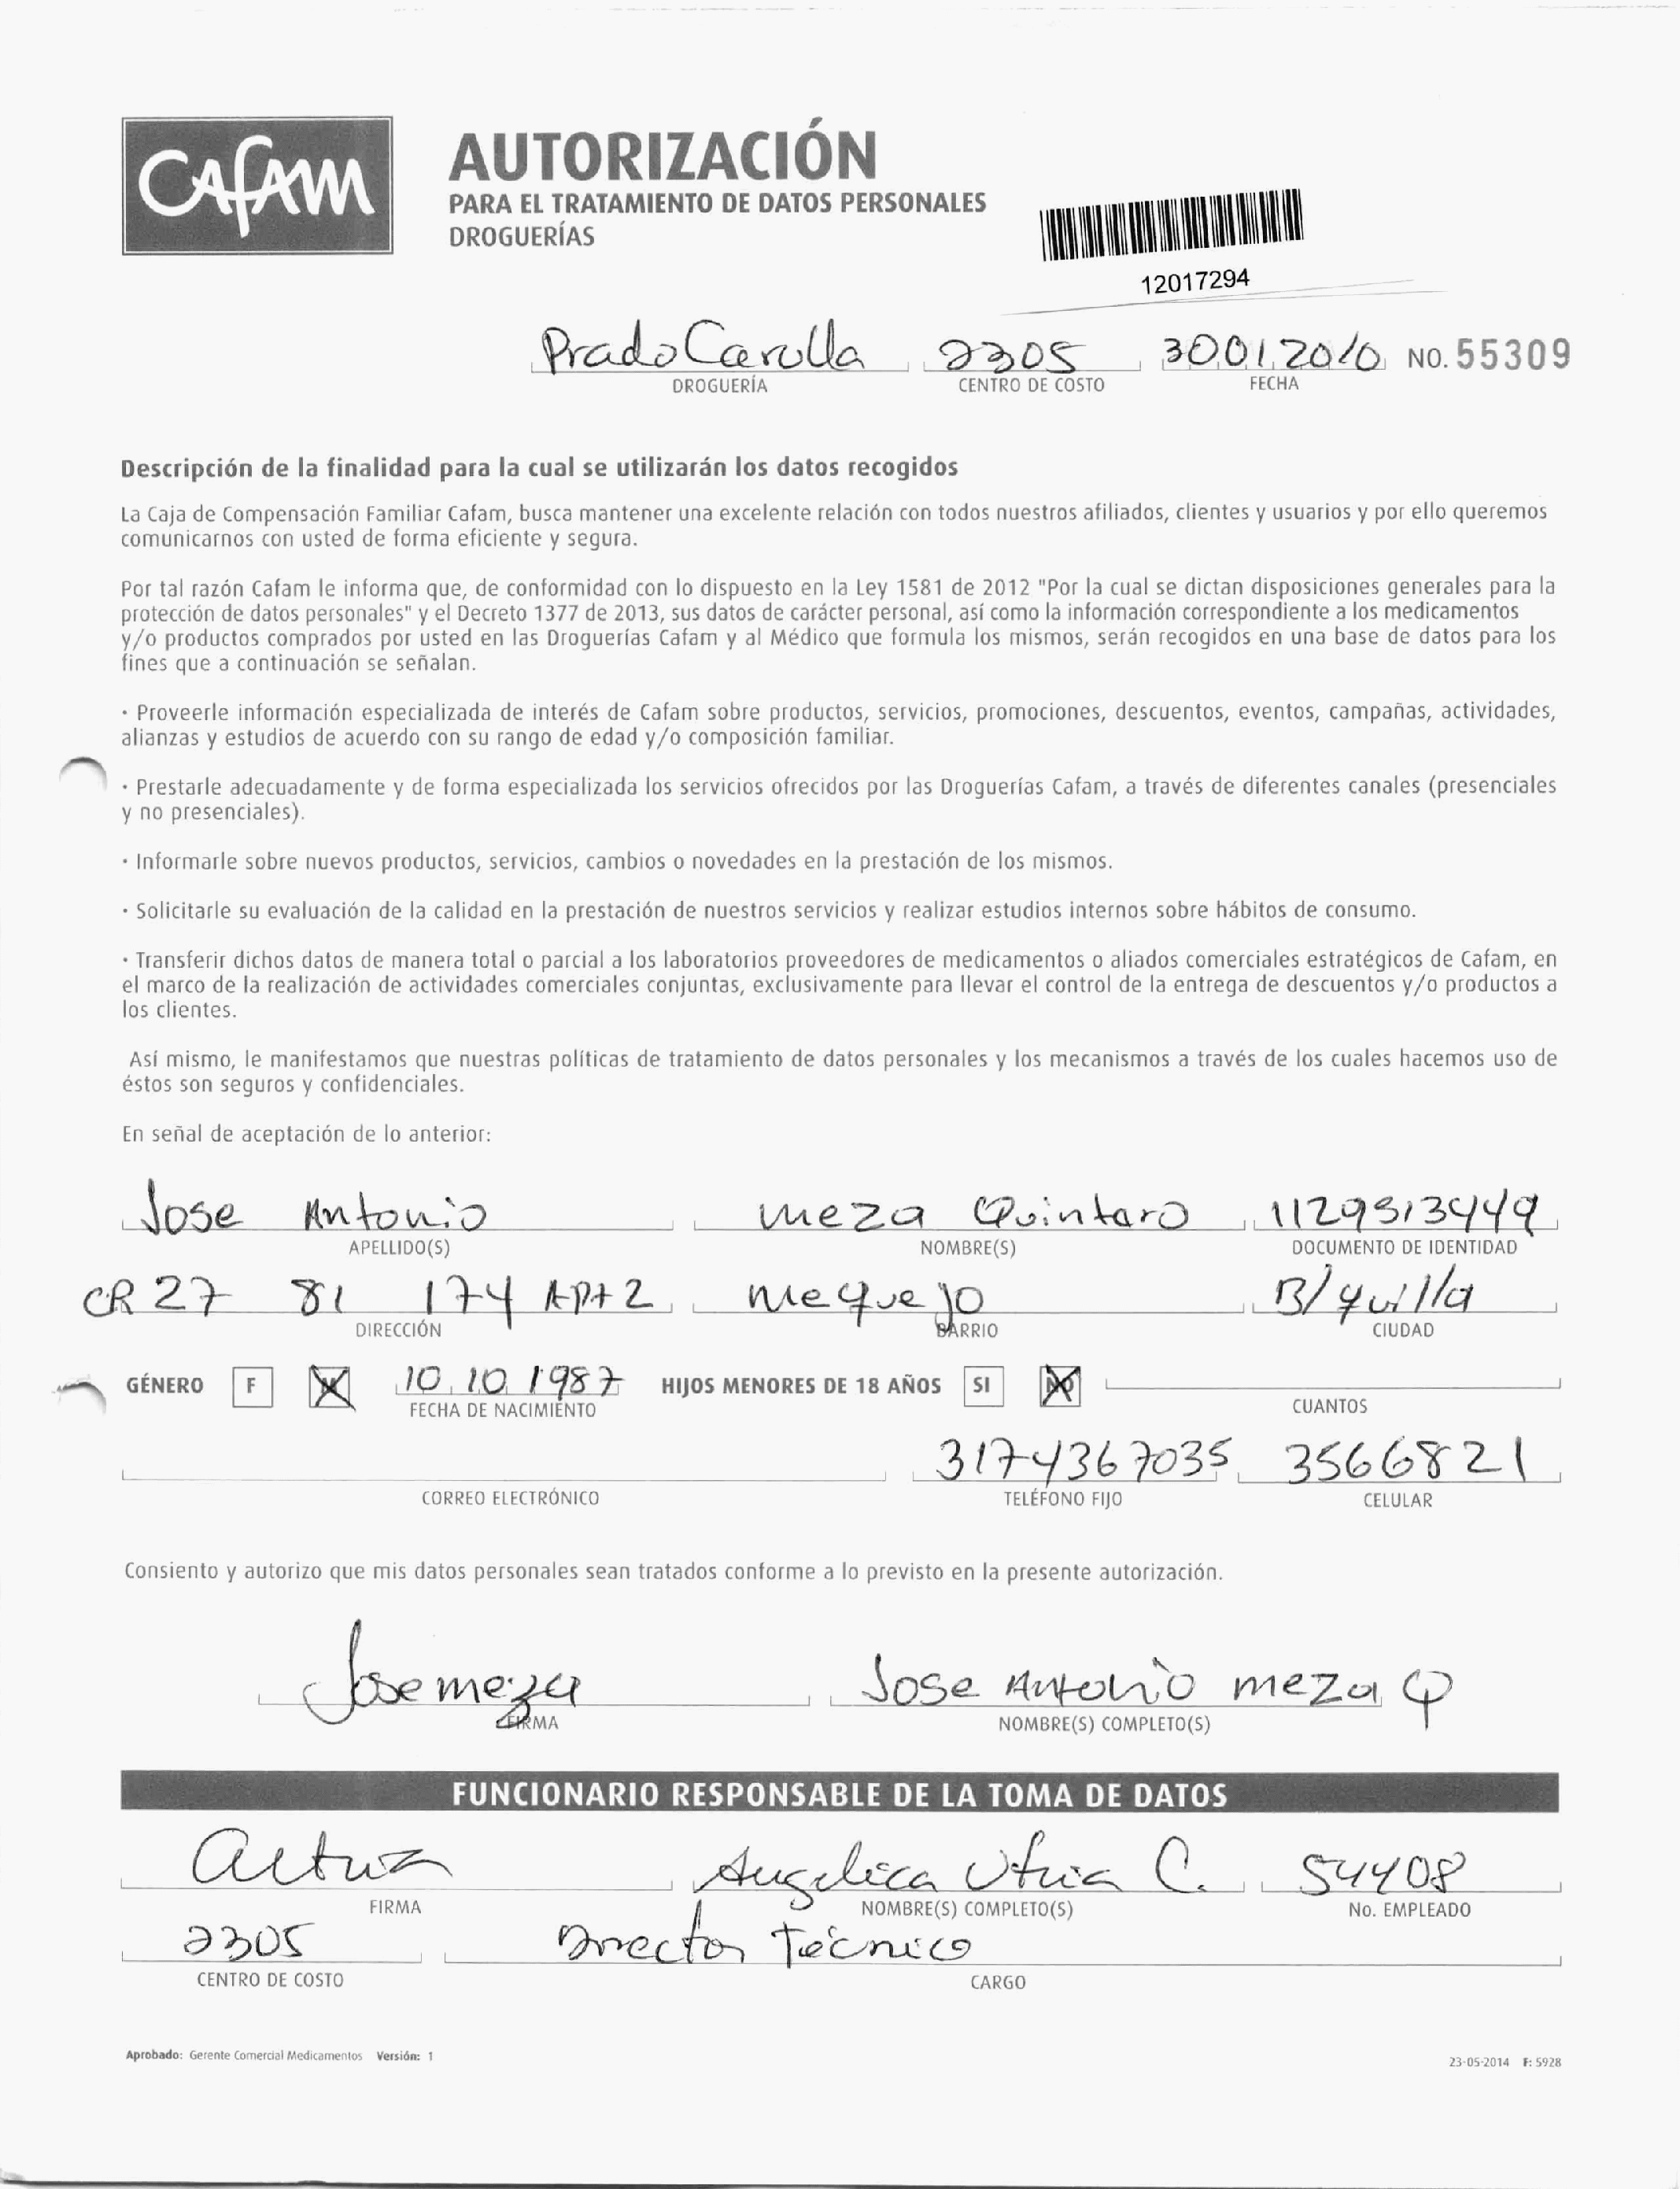 CAFAM
AUTORIZACIÓN
PARA EL TRATAMIENTO DE DATOS PERSONALES
DROGUERÍAS
12017294
Prado Carolla 2305 30.01.2010 NO. 55309
DROGUERÍA CENTRO DE COSTO FECHA
Descripción de la finalidad para la cual se utilizarán los datos recogidos
La Caja de Compensación Familiar Cafam, busca mantener una excelente relación con todos nuestros afiliados, clientes y usuarios y por ello queremos
comunicarnos con usted de forma eficiente y segura.
Por tal razón Cafam le informa que, de conformidad con lo dispuesto en la Ley 1581 de 2012 "Por la cual se dictan disposiciones generales para la
protección de datos personales" y el Decreto 1377 de 2013, sus datos de carácter personal, así como la información correspondiente a los medicamentos
y/o productos comprados por usted en las Droguerías Cafam y al Médico que formula los mismos, serán recogidos en una base de datos para los
fines que a continuación se señalan.
· Proveerle información especializada de interés de Cafam sobre productos, servicios, promociones, descuentos, eventos, campañas, actividades,
alianzas y estudios de acuerdo con su rango de edad y/o composición familiar.
· Prestarle adecuadamente y de forma especializada los servicios ofrecidos por las Droguerías Cafam, a través de diferentes canales (presenciales
y no presenciales).
· Informarle sobre nuevos productos, servicios, cambios o novedades en la prestación de los mismos.
· Solicitarle su evaluación de la calidad en la prestación de nuestros servicios y realizar estudios internos sobre hábitos de consumo.
· Transferir dichos datos de manera total o parcial a los laboratorios proveedores de medicamentos o aliados comerciales estratégicos de Cafam, en
el marco de la realización de actividades comerciales conjuntas, exclusivamente para llevar el control de la entrega de descuentos y/o productos a
los clientes.
Así mismo, le manifestamos que nuestras políticas de tratamiento de datos personales y los mecanismos a través de los cuales hacemos uso de
éstos son seguros y confidenciales.
En señal de aceptación de lo anterior:
Jose Antonio meza Quintaro 1129513449
APELLIDO(S) NOMBRE(S) DOCUMENTO DE IDENTIDAD
CR 27 81 174 Apt 2 mequejo B/quilla
DIRECCIÓN BARRIO CIUDAD
GÉNERO F M 10.10.1987 HIJOS MENORES DE 18 AÑOS SI NO
FECHA DE NACIMIENTO CUANTOS
3174367035 3566821
CORREO ELECTRÓNICO TELÉFONO FIJO CELULAR
Consiento y autorizo que mis datos personales sean tratados conforme a lo previsto en la presente autorización.
Jose meza Jose Antonio meza Q
FIRMA NOMBRE(S) COMPLETO(S)
FUNCIONARIO RESPONSABLE DE LA TOMA DE DATOS
Angelica Utria C. 54408
FIRMA NOMBRE(S) COMPLETO(S) No. EMPLEADO
2305 Director Técnico
CENTRO DE COSTO CARGO
Aprobado: Gerente Comercial Medicamentos Versión: 1 23-05-2014 F: 5928